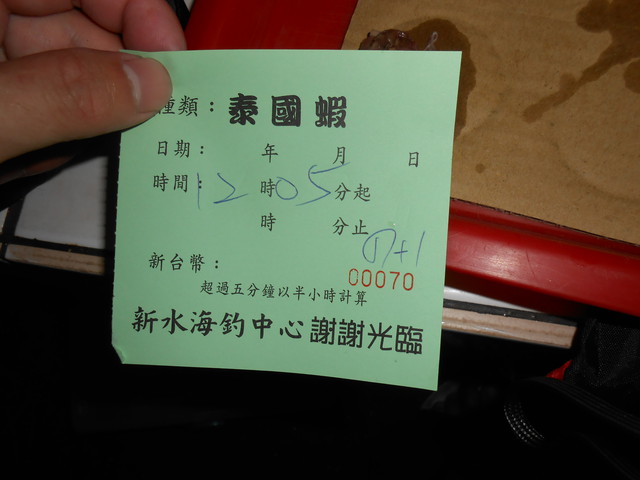 種類：泰國蝦
日期： 年 月 日
時間：12時05分起
時 分止
①+1
新台幣：
00070
超過五分鐘以半小時計算
新水海釣中心謝謝光臨